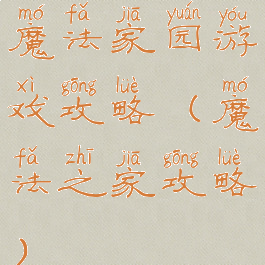 mó fǎ jiā yuán yóu
魔法家园游
xì gōng lüè mó
戏攻略（魔
fǎ zhī jiā gōng lüè
法之家攻略
）